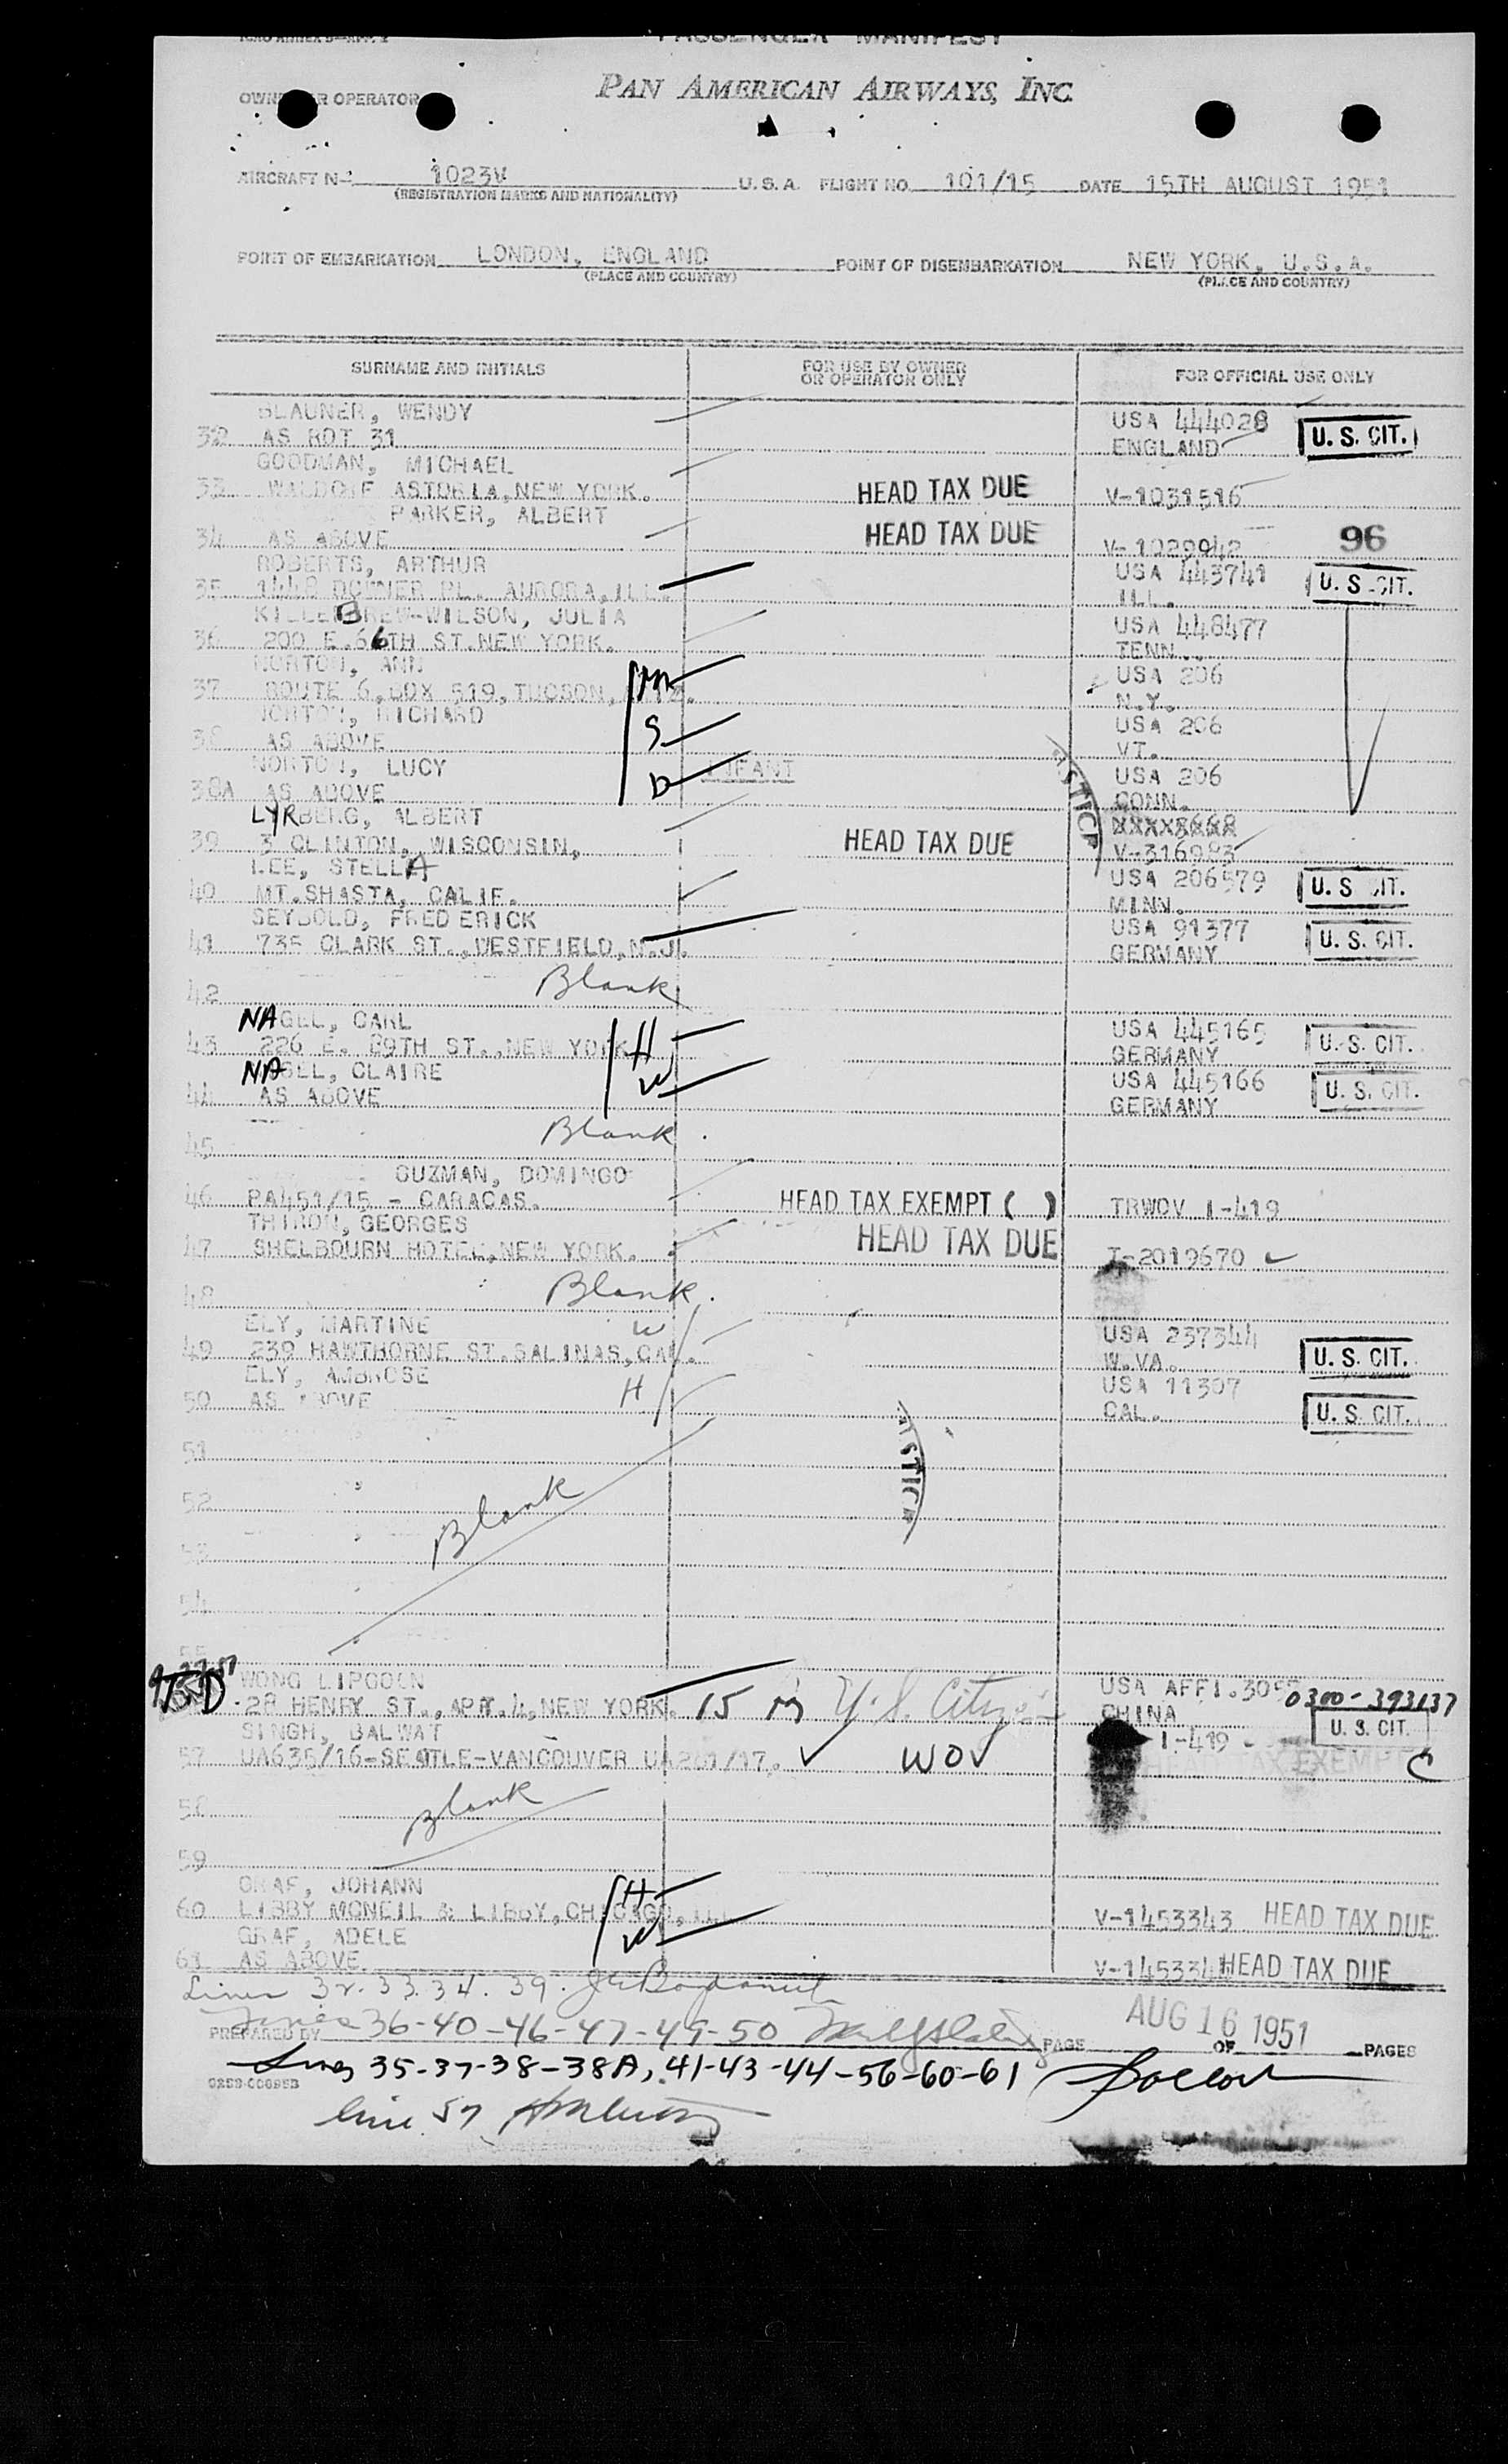 PASSENGER MANIFEST
PAN AMERICAN AIRWAYS, INC.
OWNER OR OPERATOR
AIRCRAFT No. 1023V U.S.A. FLIGHT NO. 101/15 DATE 15TH AUGUST 1951
(REGISTRATION MARKS AND NATIONALITY)
POINT OF EMBARKATION LONDON, ENGLAND POINT OF DISEMBARKATION NEW YORK, U.S.A.
(PLACE AND COUNTRY) (PLACE AND COUNTRY)
SURNAME AND INITIALS FOR USE BY OWNER OR OPERATOR ONLY FOR OFFICIAL USE ONLY
BLAUNER, WENDY USA 444028
32 AS ROT 31 ENGLAND U.S. CIT.
GOODMAN, MICHAEL
33 WALDORF ASTORIA, NEW YORK. HEAD TAX DUE V-1031516
PARKER, ALBERT
34 AS ABOVE HEAD TAX DUE V-1029942 96
ROBERTS, ARTHUR USA 443741
35 1448 DOWNER PL. AURORA, ILL. ILL. U.S. CIT.
KILLEBREW-WILSON, JULIA USA 448477
36 200 E. 66TH ST. NEW YORK. TENN.
NORTON, ANN USA 206
37 ROUTE 6, BOX 519, TUCSON, M N.Y.
NORTON, RICHARD USA 206
38 AS ABOVE S VT.
NORTON, LUCY INFANT USA 206
38A AS ABOVE D CONN.
LYRBERG, ALBERT
39 3 CLINTON, WISCONSIN, HEAD TAX DUE V-316983
LEE, STELLA USA 206579
40 MT. SHASTA, CALIF. MINN. U.S. CIT.
SEYBOLD, FREDERICK USA 91377
41 735 CLARK ST., WESTFIELD, N.J. GERMANY U.S. CIT.
42 Blank
NAGEL, CARL USA 445165
43 226 E. 89TH ST., NEW YORK H GERMANY U.S. CIT.
NAGEL, CLAIRE USA 445166
44 AS ABOVE W GERMANY U.S. CIT.
45 Blank
GUZMAN, DOMINGO
46 PA451/15 - CARACAS. HEAD TAX EXEMPT ( ) TRWOV I-419
THIRON, GEORGES
47 SHELBOURN HOTEL, NEW YORK. HEAD TAX DUE T-2019670
48 Blank
ELY, MARTINE W USA 237344
49 239 HAWTHORNE ST. SALINAS, CAL. W.VA. U.S. CIT.
ELY, AMBROSE H USA 11307
50 AS ABOVE CAL. U.S. CIT.
51
52 Blank
53
54
55
WONG LIPGOON USA AFFI.
28 HENRY ST., APT. 4, NEW YORK. 15 M U.S. Citizen CHINA 0300-393137
SINGH, BALWAT I-419 U.S. CIT.
57 UA635/16-SEATTLE-VANCOUVER UA261/17. WOV HEAD TAX EXEMPT C
58 Blank
59
GRAF, JOHANN H
60 LIBBY MCNEIL & LIBBY, CHICAGO, ILL V-1453343 HEAD TAX DUE
GRAF, ADELE W
61 AS ABOVE V-145334 HEAD TAX DUE
Lines 32. 33. 34. 39.
Lines 36-40-46-47-49-50
PREPARED BY PAGE OF PAGES
AUG 16 1951
Lines 35-37-38-38A, 41-43-44-56-60-61
line 57